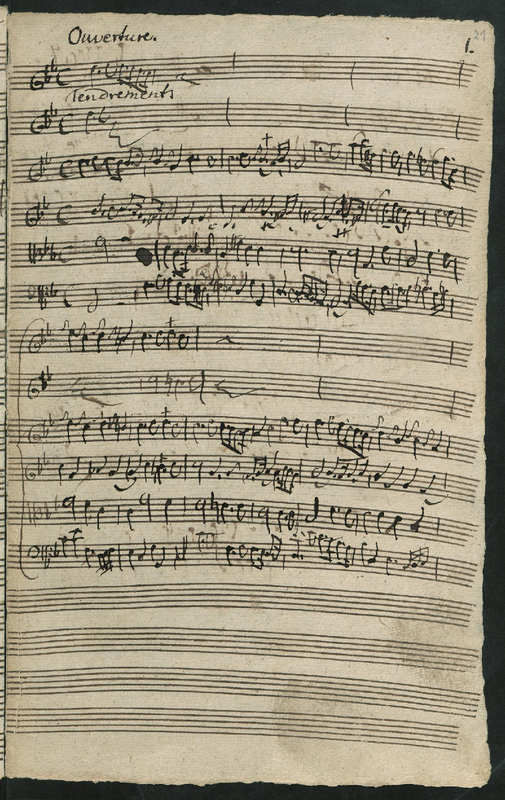 Ouverture.
1.
21
Tendrements